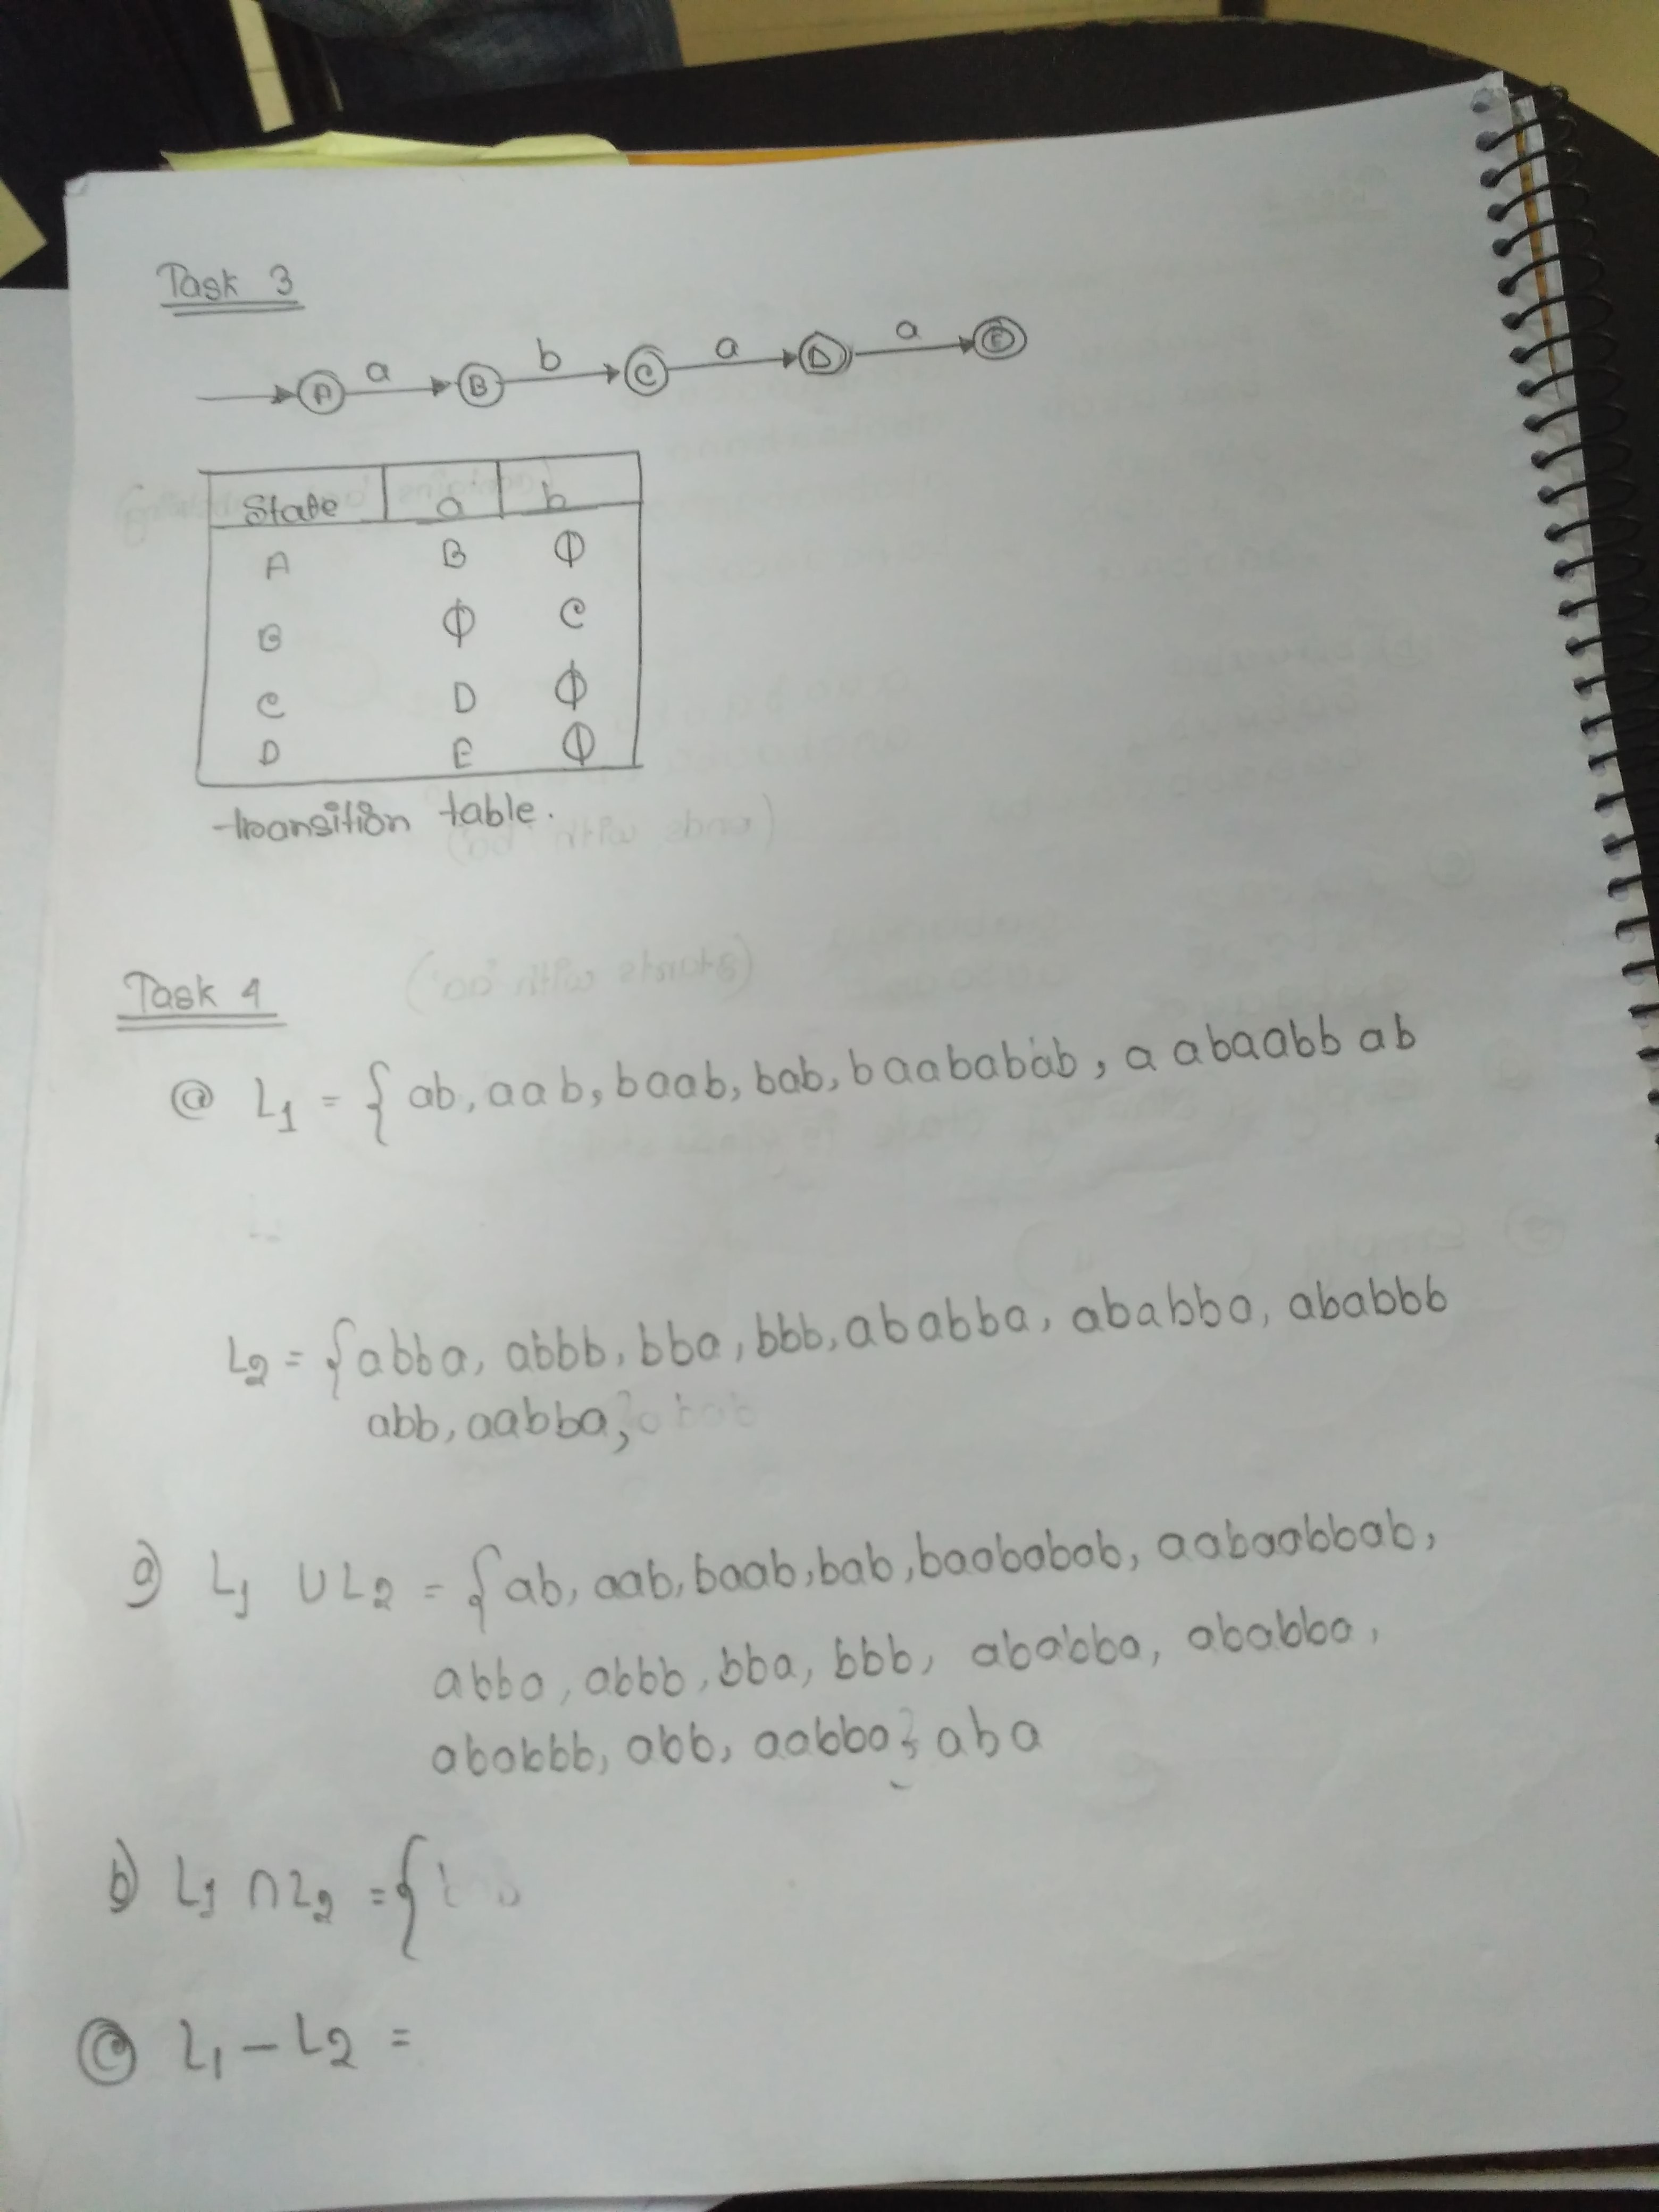 Task 3
A a B b C a D a E
State a b
A B Φ
B Φ C
C D Φ
D E Φ
transition table.
Task 4
ⓐ L₁ = { ab, aab, baab, bab, baababab, a abaabb ab
L₂ = { abba, abbb, bba, bbb, ababba, ababba, ababbb
abb, aabba,
a) L₁ ∪ L₂ = { ab, aab, baab, bab, baababab, aabaabbab,
abba, abbb, bba, bbb, ababba, ababba,
ababbb, abb, aabba } aba
b) L₁ ∩ L₂ = {
ⓒ L₁ - L₂ =